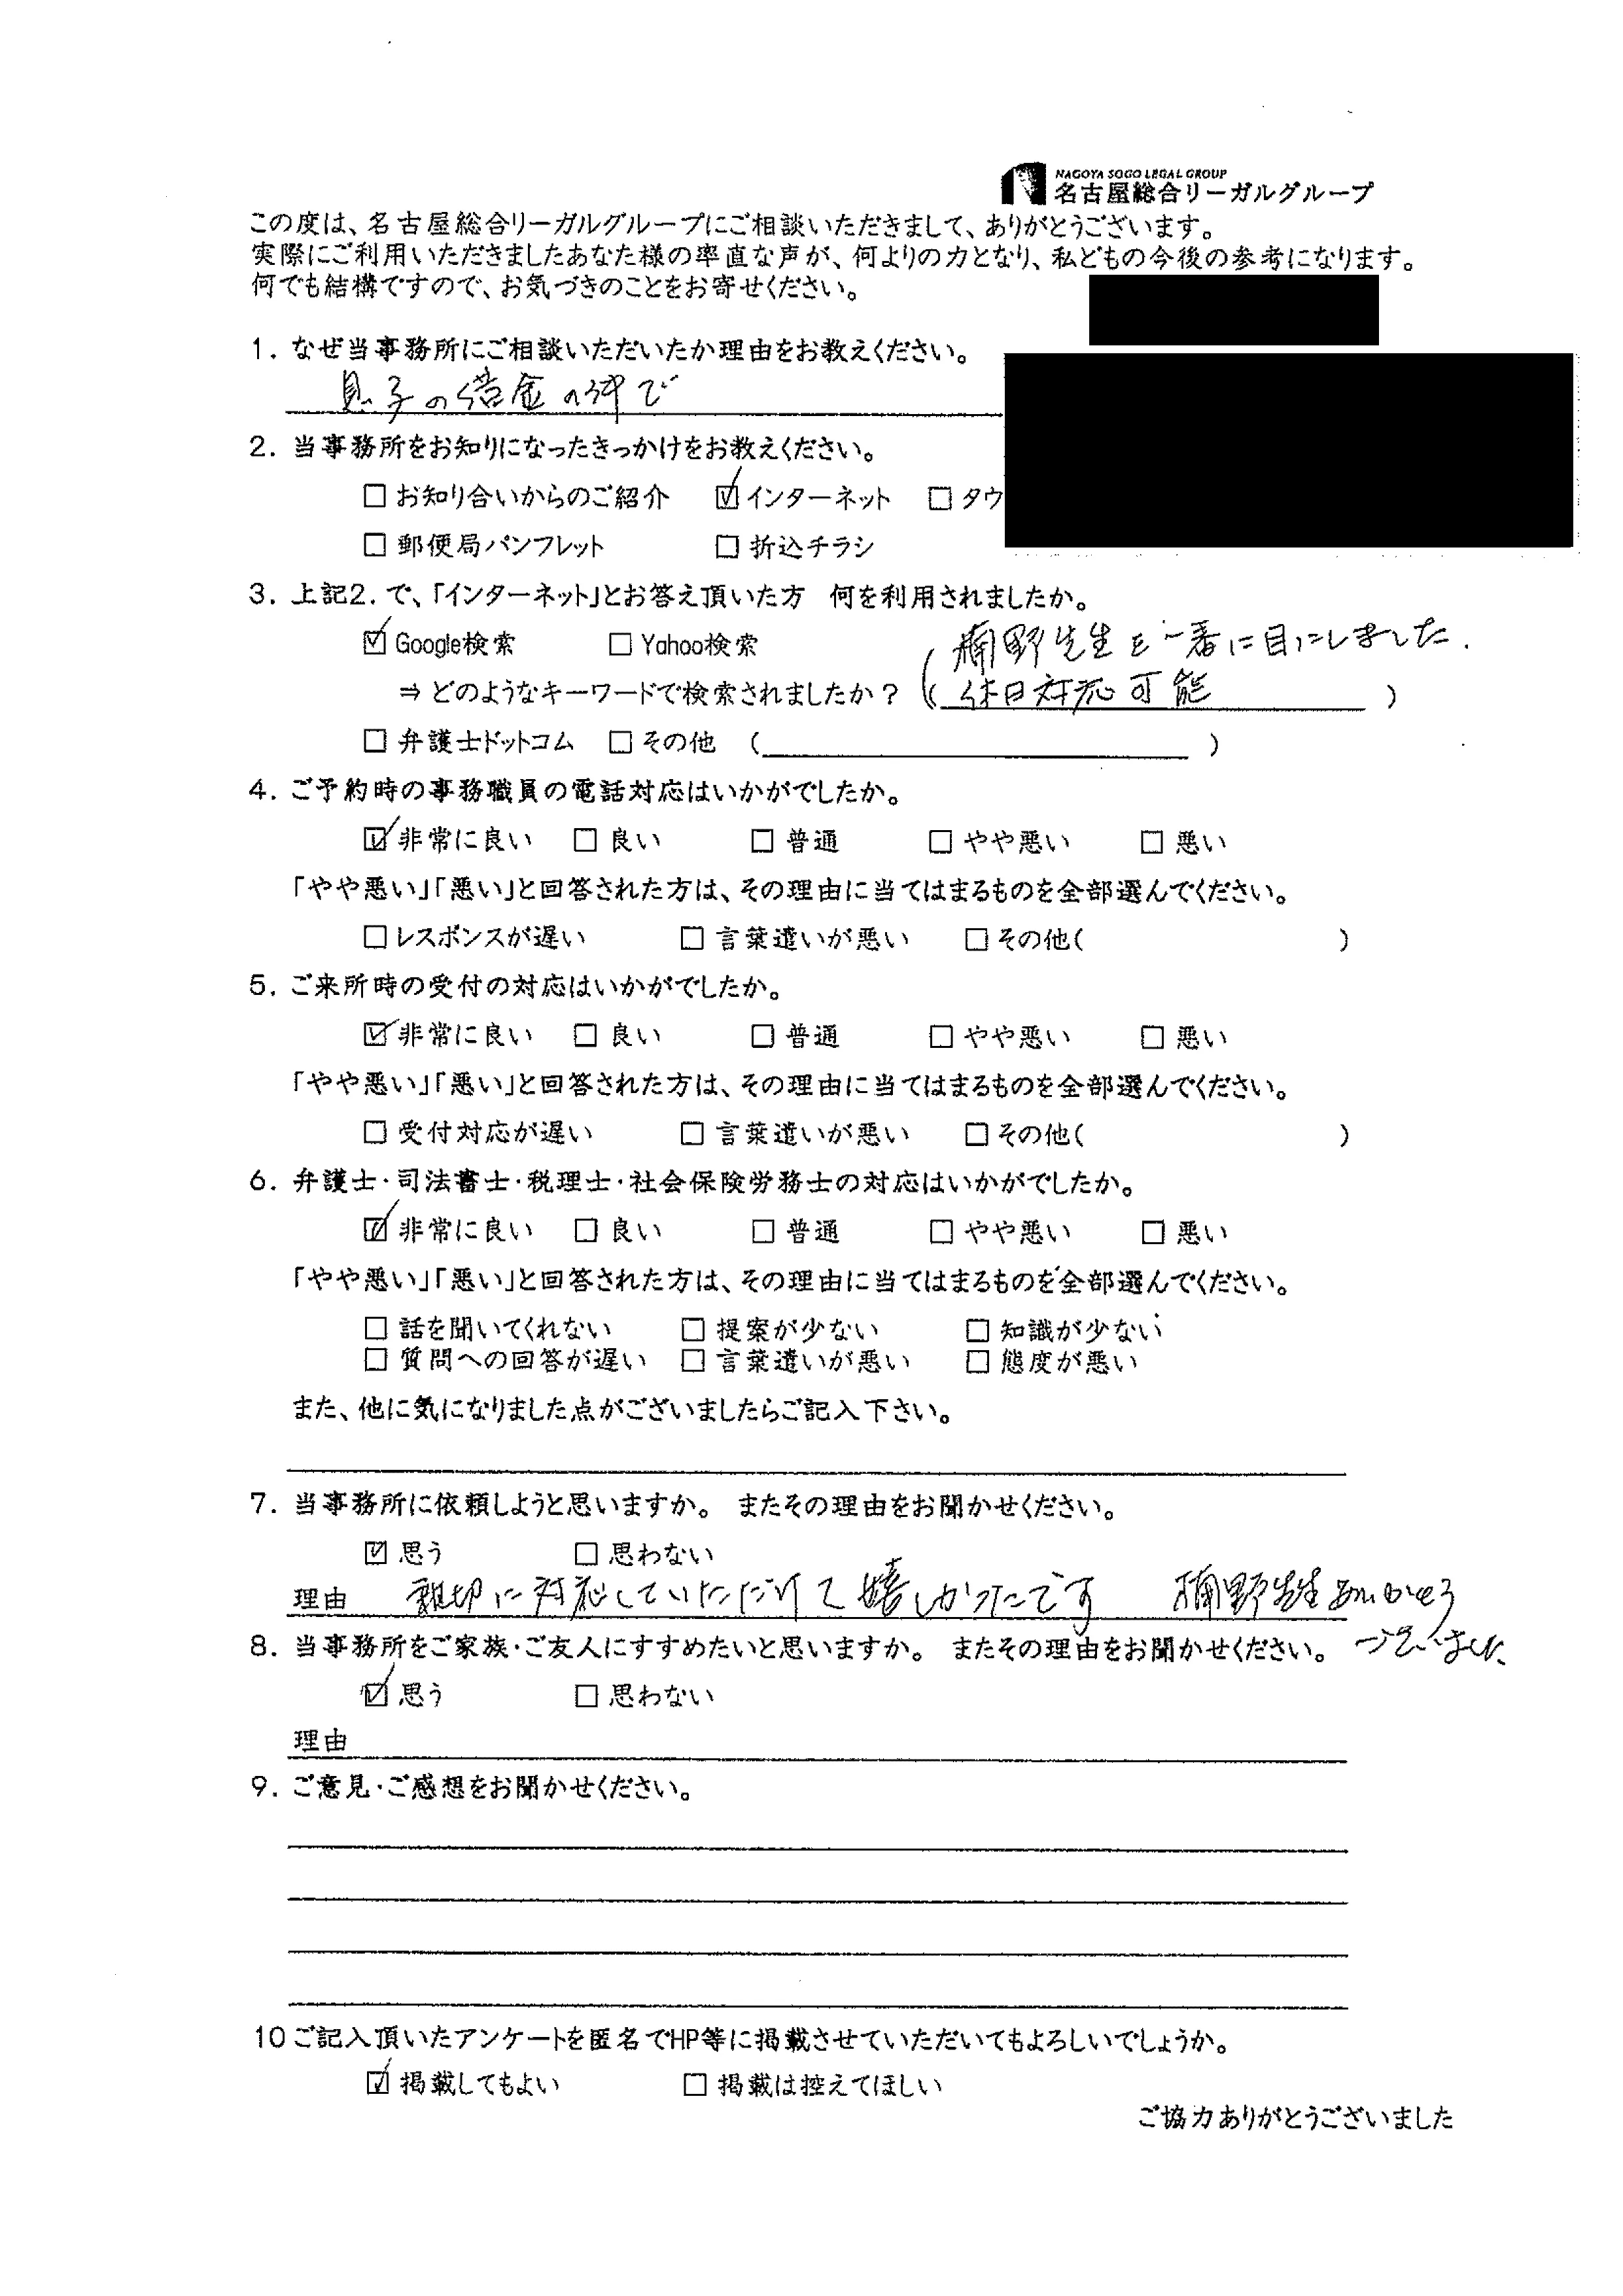 NAGOYA SOGO LEGAL GROUP
名古屋総合リーガルグループ
この度は、名古屋総合リーガルグループにご相談いただきまして、ありがとうございます。
実際にご利用いただきましたあなた様の率直な声が、何よりの力となり、私どもの今後の参考になります。
何でも結構ですので、お気づきのことをお寄せください。
1. なぜ当事務所にご相談いただいたか理由をお教えください。
息子の借金の件で
2. 当事務所をお知りになったきっかけをお教えください。
□ お知り合いからのご紹介 ☑ インターネット □ タウ
□ 郵便局パンフレット □ 折込チラシ
3. 上記2. で、「インターネット」とお答え頂いた方 何を利用されましたか。
☑ Google検索 □ Yahoo検索 ( 野先生を一番に目にしました.
⇒ どのようなキーワードで検索されましたか? ( 休日対応可能 )
□ 弁護士ドットコム □ その他 ( )
4. ご予約時の事務職員の電話対応はいかがでしたか。
☑ 非常に良い □ 良い □ 普通 □ やや悪い □ 悪い
「やや悪い」「悪い」と回答された方は、その理由に当てはまるものを全部選んでください。
□ レスポンスが遅い □ 言葉遣いが悪い □ その他( )
5. ご来所時の受付の対応はいかがでしたか。
☑ 非常に良い □ 良い □ 普通 □ やや悪い □ 悪い
「やや悪い」「悪い」と回答された方は、その理由に当てはまるものを全部選んでください。
□ 受付対応が遅い □ 言葉遣いが悪い □ その他( )
6. 弁護士・司法書士・税理士・社会保険労務士の対応はいかがでしたか。
☑ 非常に良い □ 良い □ 普通 □ やや悪い □ 悪い
「やや悪い」「悪い」と回答された方は、その理由に当てはまるものを全部選んでください。
□ 話を聞いてくれない □ 提案が少ない □ 知識が少ない
□ 質問への回答が遅い □ 言葉遣いが悪い □ 態度が悪い
また、他に気になりました点がございましたらご記入下さい。
7. 当事務所に依頼しようと思いますか。 またその理由をお聞かせください。
☑ 思う □ 思わない
理由 親切に対応していただけて嬉しかったです 野先生
8. 当事務所をご家族・ご友人にすすめたいと思いますか。 またその理由をお聞かせください。
☑ 思う □ 思わない
理由
9. ご意見・ご感想をお聞かせください。
10 ご記入頂いたアンケートを匿名でHP等に掲載させていただいてもよろしいでしょうか。
☑ 掲載してもよい □ 掲載は控えてほしい
ご協力ありがとうございました